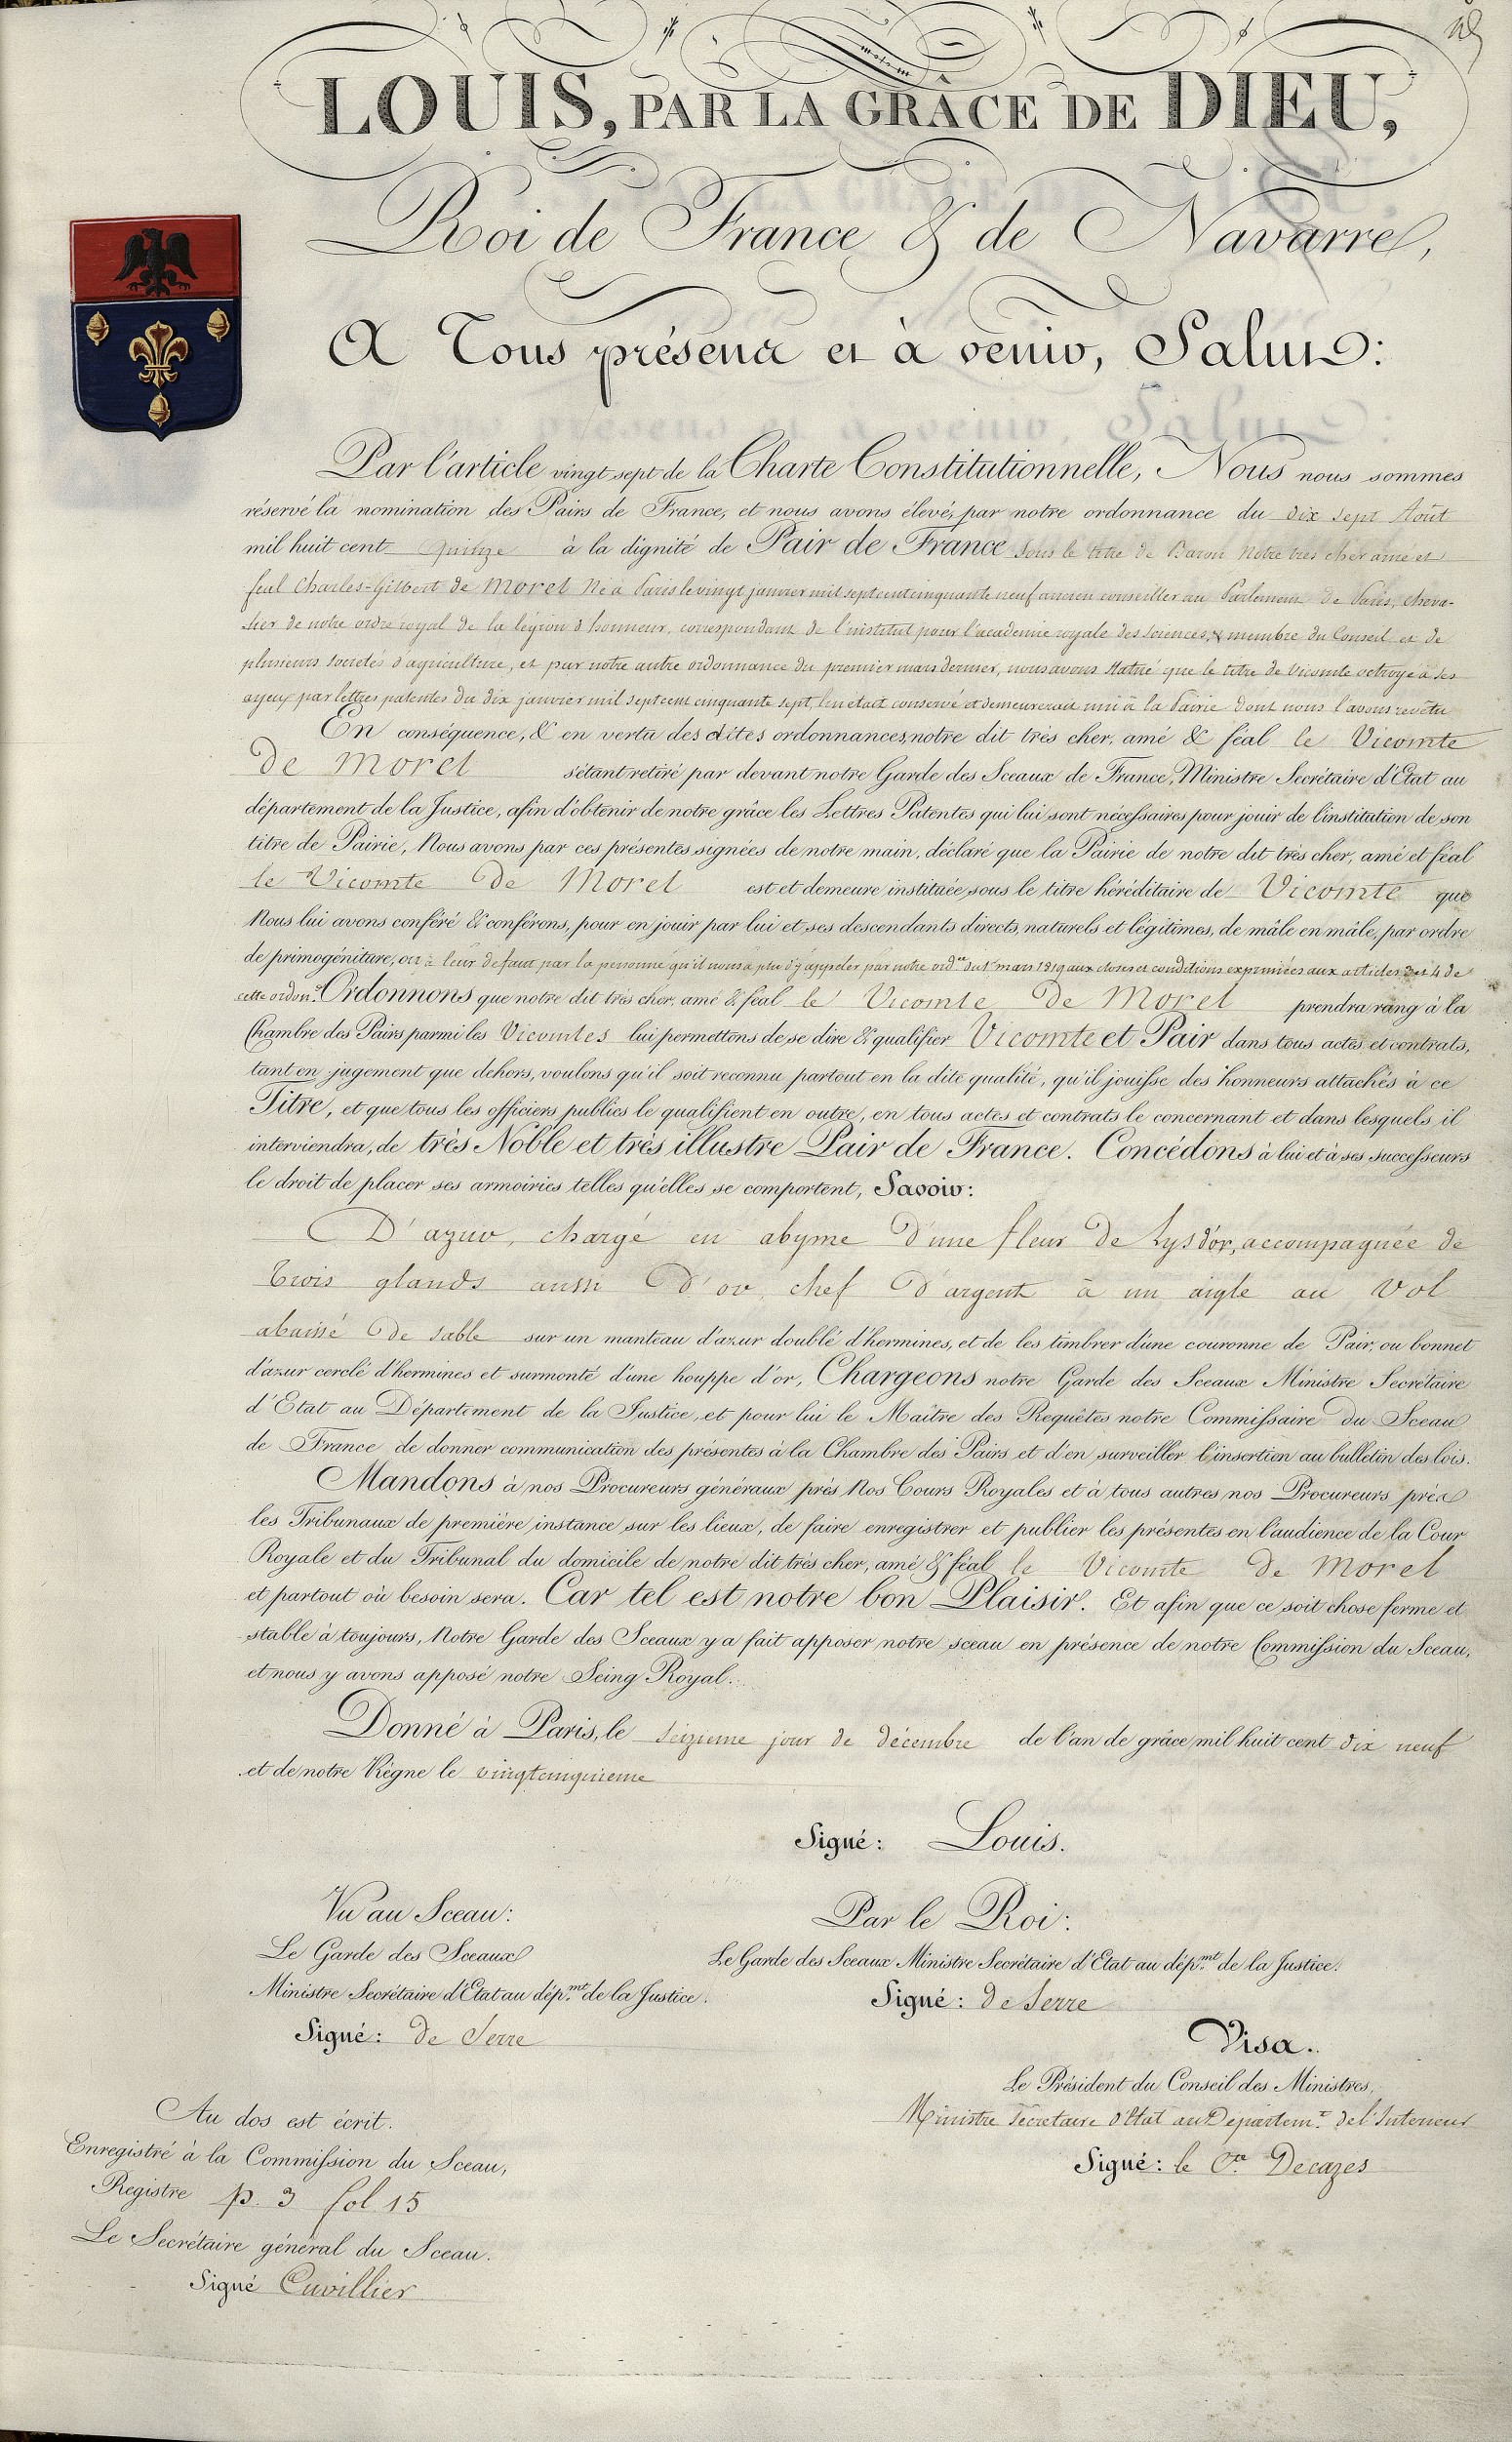 15
LOUIS, PAR LA GRÂCE DE DIEU,
Roi de France & de Navarre,
A Tous présens et à venir, Salut:
Par l'article vingt sept de la Charte Constitutionnelle, Nous nous sommes
réservé la nomination des Pairs de France, et nous avons élevé, par notre ordonnance du dix sept Août
mil huit cent quinze à la dignité de Pair de France sous le titre de Baron Notre très cher amé et
féal Charles-Gilbert de Morel Né à Paris le vingt janvier mil sept cent cinquante neuf ancien conseiller au Parlement de Paris, cheva-
lier de notre ordre royal de la légion d'honneur, correspondant de l'institut pour l'academie royale des sciences, & membre du Conseil et de
plusieurs societés d'agriculture, et par notre autre ordonnance du premier mars dernier, nous avons statué que le titre de Vicomte octroyé à ses
ayeux par lettres patentes du dix janvier mil sept cent cinquante sept, lui était conservé et demeurerait uni à la Pairie dont nous l'avons revêtu
En conséquence, & en vertu des dites ordonnances, notre dit très cher, amé & féal le Vicomte
de Morel s'étant retiré par devant notre Garde des Sceaux de France, Ministre Secrétaire d'Etat au
département de la Justice, afin d'obtenir de notre grâce les Lettres Patentes qui lui sont nécessaires pour jouir de l'institution de son
titre de Pairie, Nous avons par ces présentes signées de notre main, déclaré que la Pairie de notre dit très cher, amé et féal
le Vicomte de Morel est et demeure instituée sous le titre héréditaire de Vicomte que
Nous lui avons conféré & conférons, pour en jouir par lui et ses descendants directs, naturels et légitimes, de mâle en mâle, par ordre
de primogéniture, ou à leur defaut par la personne qu'il nous a plu d'y appeler par notre ord.ce du 1er mars 1819 aux closes et conditions exprimées aux articles 3 et 4 de
cette ordon.ce Ordonnons que notre dit très cher, amé & féal le Vicomte de Morel prendra rang à la
Chambre des Pairs parmi les Vicomtes lui permettons de se dire & qualifier Vicomte et Pair dans tous actes et contrats,
tant en jugement que dehors, voulons qu'il soit reconnu partout en la dite qualité, qu'il jouisse des honneurs attachés à ce
Titre, et que tous les officiers publics le qualifient en outre, en tous actes et contrats le concernant et dans lesquels il
interviendra, de très Noble et très illustre Pair de France. Concédons à lui et à ses successeurs
le droit de placer ses armoiries telles qu'elles se comportent, Savoir:
D'azur, chargé en abyme d'une fleur de Lys d'or, accompagnée de
trois glands aussi d'or, chef d'argent à un aigle au vol
abaissé de sable sur un manteau d'azur doublé d'hermines, et de les timbrer d'une couronne de Pair, ou bonnet
d'azur cerclé d'hermines et surmonté d'une houppe d'or, Chargeons notre Garde des Sceaux Ministre Secrétaire
d'Etat au Département de la Justice, et pour lui le Maître des Requêtes notre Commissaire du Sceau
de France de donner communication des présentes à la Chambre des Pairs et d'en surveiller l'insertion au bulletin des lois.
Mandons à nos Procureurs généraux près Nos Cours Royales et à tous autres nos Procureurs près
les Tribunaux de première instance sur les lieux, de faire enregistrer et publier les présentes en l'audience de la Cour
Royale et du Tribunal du domicile de notre dit très cher, amé & féal le Vicomte de Morel
et partout où besoin sera. Car tel est notre bon Plaisir. Et afin que ce soit chose ferme et
stable à toujours, Notre Garde des Sceaux y a fait apposer notre sceau en présence de notre Commission du Sceau,
et nous y avons apposé notre Seing Royal.
Donné à Paris, le seizieme jour de décembre de l'an de grâce mil huit cent dix neuf
et de notre Règne le vingtcinquieme
Signé: Louis.
Vu au Sceau:
Le Garde des Sceaux
Ministre Secrétaire d'Etat au dép.mt de la Justice.
Signé: de Serre
Par le Roi:
Le Garde des Sceaux Ministre Secrétaire d'Etat au dép.mt de la Justice.
Signé: de Serre
Visa.
Le Président du Conseil des Ministres,
Ministre secretaire d'Etat au Departem.t de l'Interieur
Signé: le C.te Decazes
Au dos est écrit.
Enregistré à la Commission du Sceau,
Registre p. 3 fol. 15
Le Secrétaire général du Sceau.
Signé Cuvillier